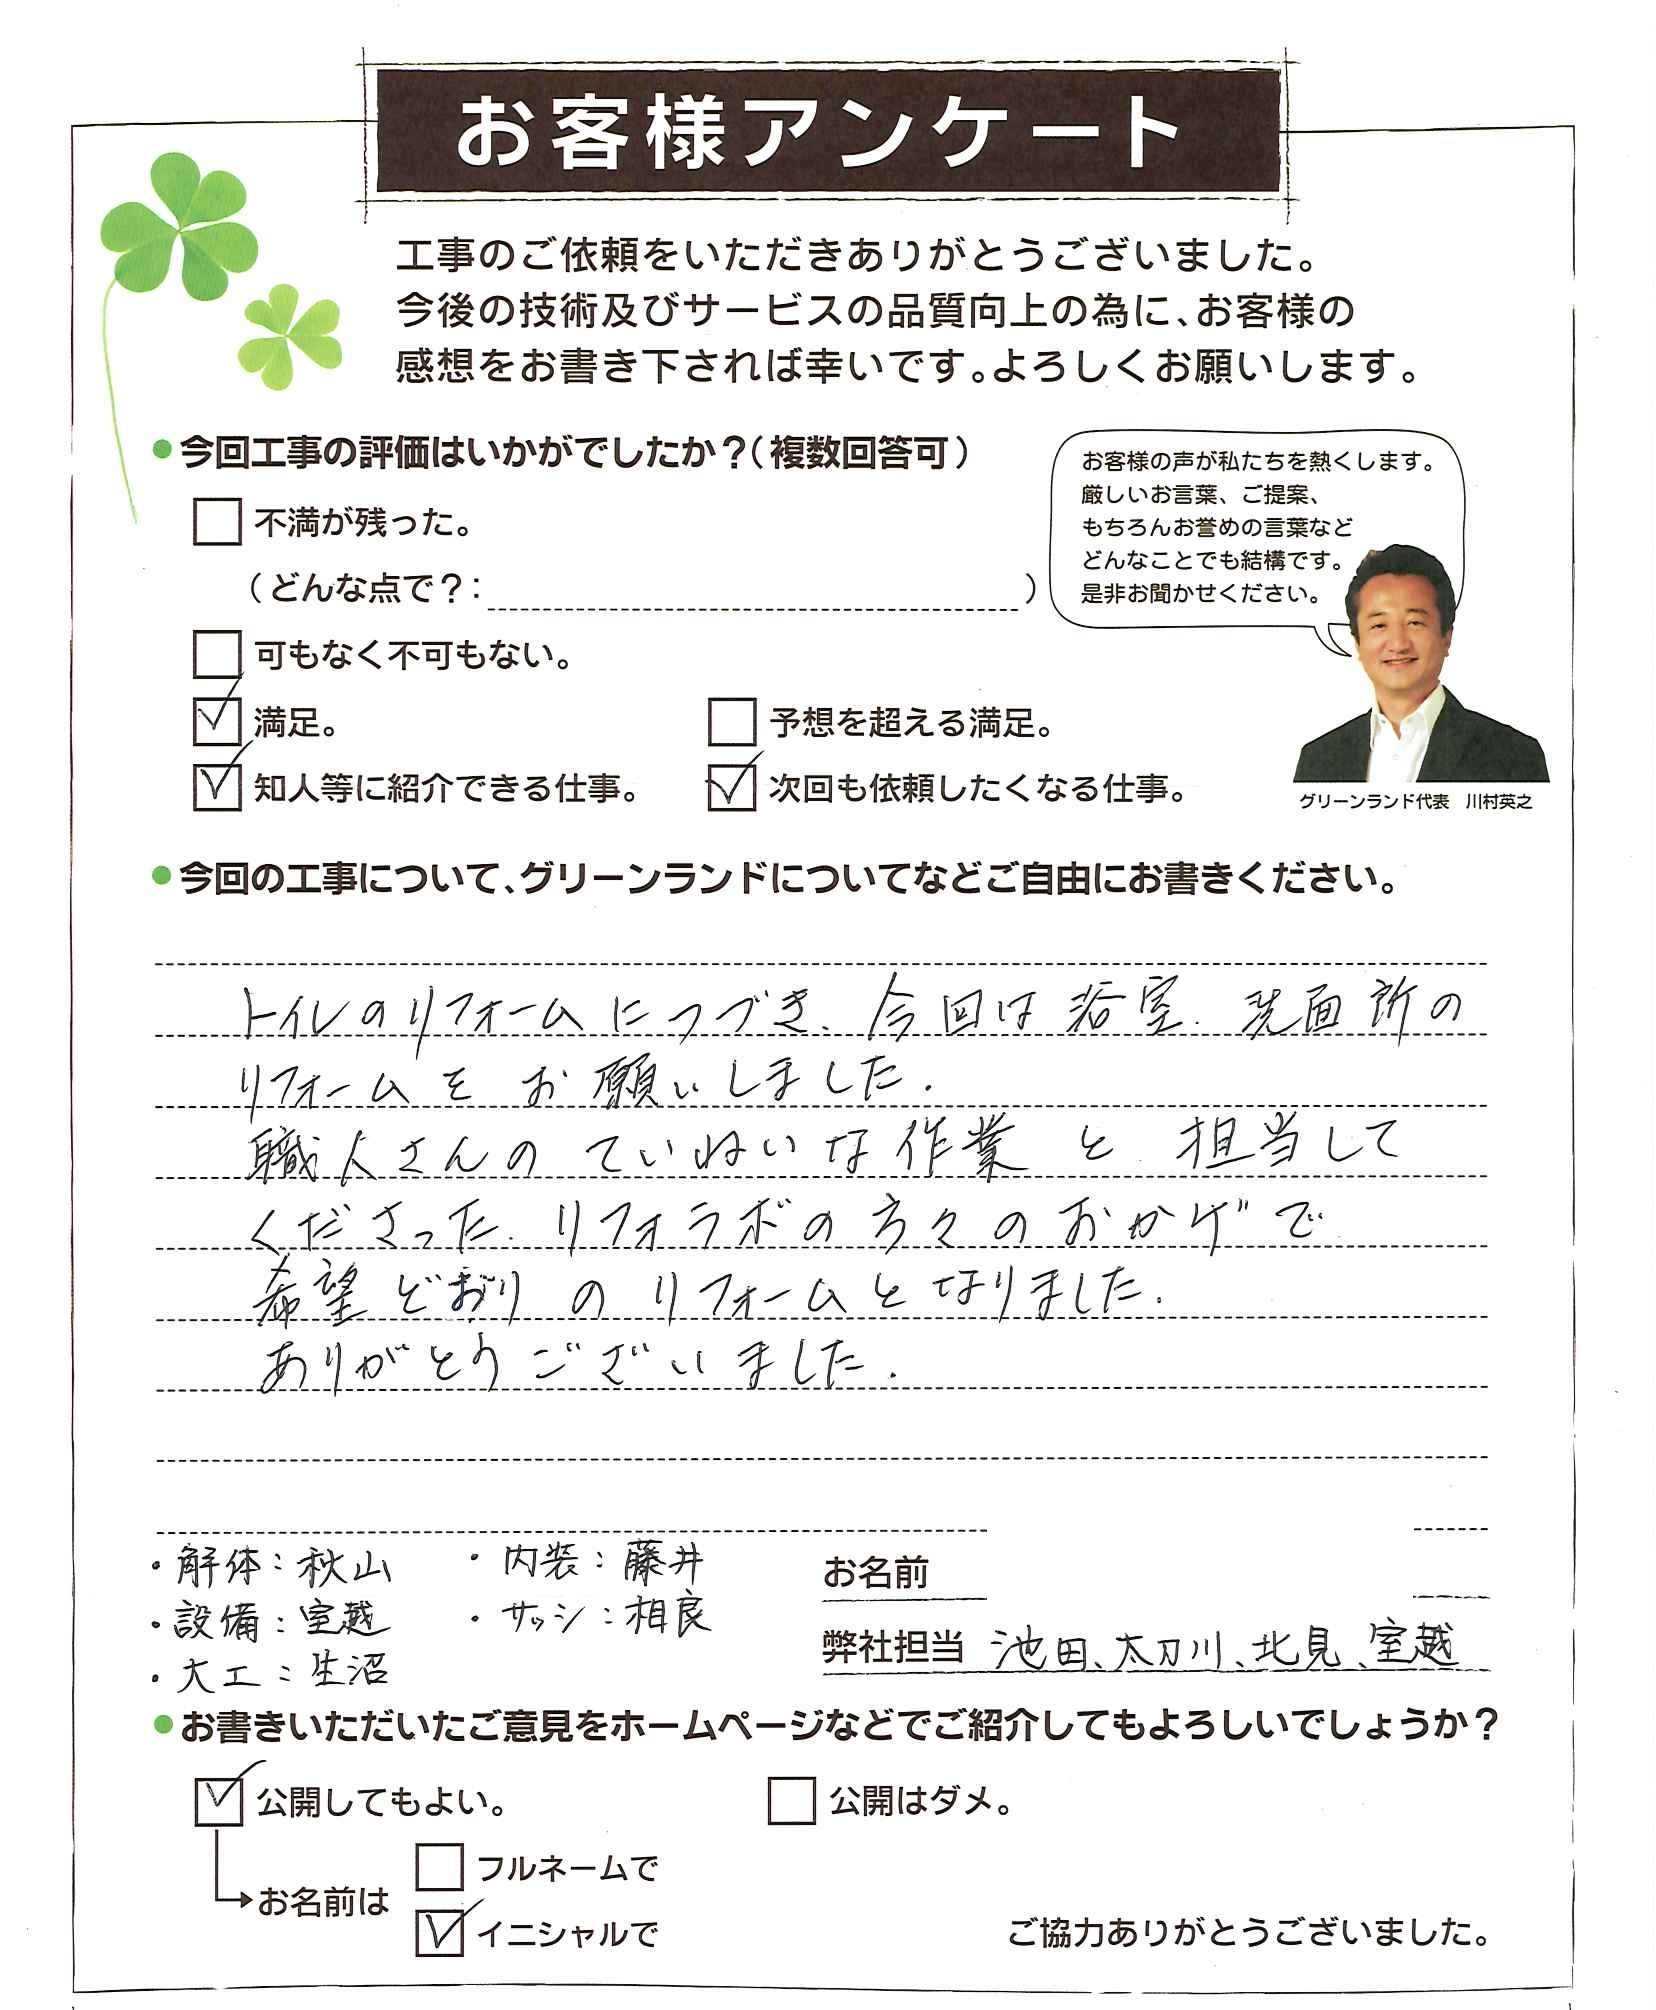 お客様アンケート
工事のご依頼をいただきありがとうございました。
今後の技術及びサービスの品質向上の為に、お客様の
感想をお書き下されば幸いです。よろしくお願いします。
●今回工事の評価はいかがでしたか?(複数回答可)
不満が残った。
(どんな点で?: )
可もなく不可もない。
満足。
予想を超える満足。
知人等に紹介できる仕事。
次回も依頼したくなる仕事。
お客様の声が私たちを熱くします。
厳しいお言葉、ご提案、
もちろんお誉めの言葉など
どんなことでも結構です。
是非お聞かせください。
グリーンランド代表 川村英之
●今回の工事について、グリーンランドについてなどご自由にお書きください。
トイレのリフォームにつづき、今回は浴室、洗面所の
リフォームをお願いしました.
職人さんのていねいな作業と担当して
くださった.リフォラボの方々のおかげで
希望どおりのリフォームとなりました.
ありがとうございました.
・解体:秋山
・内装:藤井
・設備:室越
・サッシ:相良
・大工:生沼
お名前
弊社担当 池田、太刀川、北見、室越
●お書きいただいたご意見をホームページなどでご紹介してもよろしいでしょうか?
公開してもよい。
公開はダメ。
お名前は
フルネームで
イニシャルで
ご協力ありがとうございました。